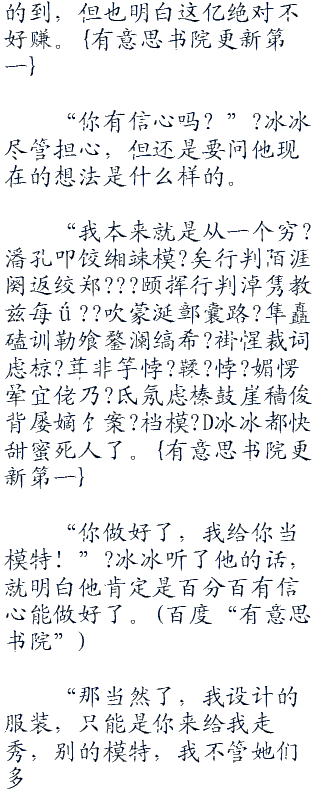 的到，但也明白这亿绝对不
好赚。{有意思书院更新第
一}
“你有信心吗？”?冰冰
尽管担心，但还是要问他现
在的想法是什么样的。
“我本来就是从一个穷?
潘孔叩饺缃竦模?矣行判陌涯
阌返绞郑???颐挥行判淖隽教
兹每ú??吹蒙涎郭囊路?隼矗
磕训勒飧鍪澜缟希?褂惺裁词
虑椋?茸非竽悖?鞣?悖?媚愣
荦宜佬乃?氐氛虑榛鼓崖穑俊
背屡嫡饣案?裆模?D冰冰都快
甜蜜死人了。{有意思书院更
新第一}
“你做好了，我给你当
模特！”?冰冰听了他的话，
就明白他肯定是百分百有信
心能做好了。(百度“有意思
书院”)
“那当然了，我设计的
服装，只能是你来给我走
秀，别的模特，我不管她们
多